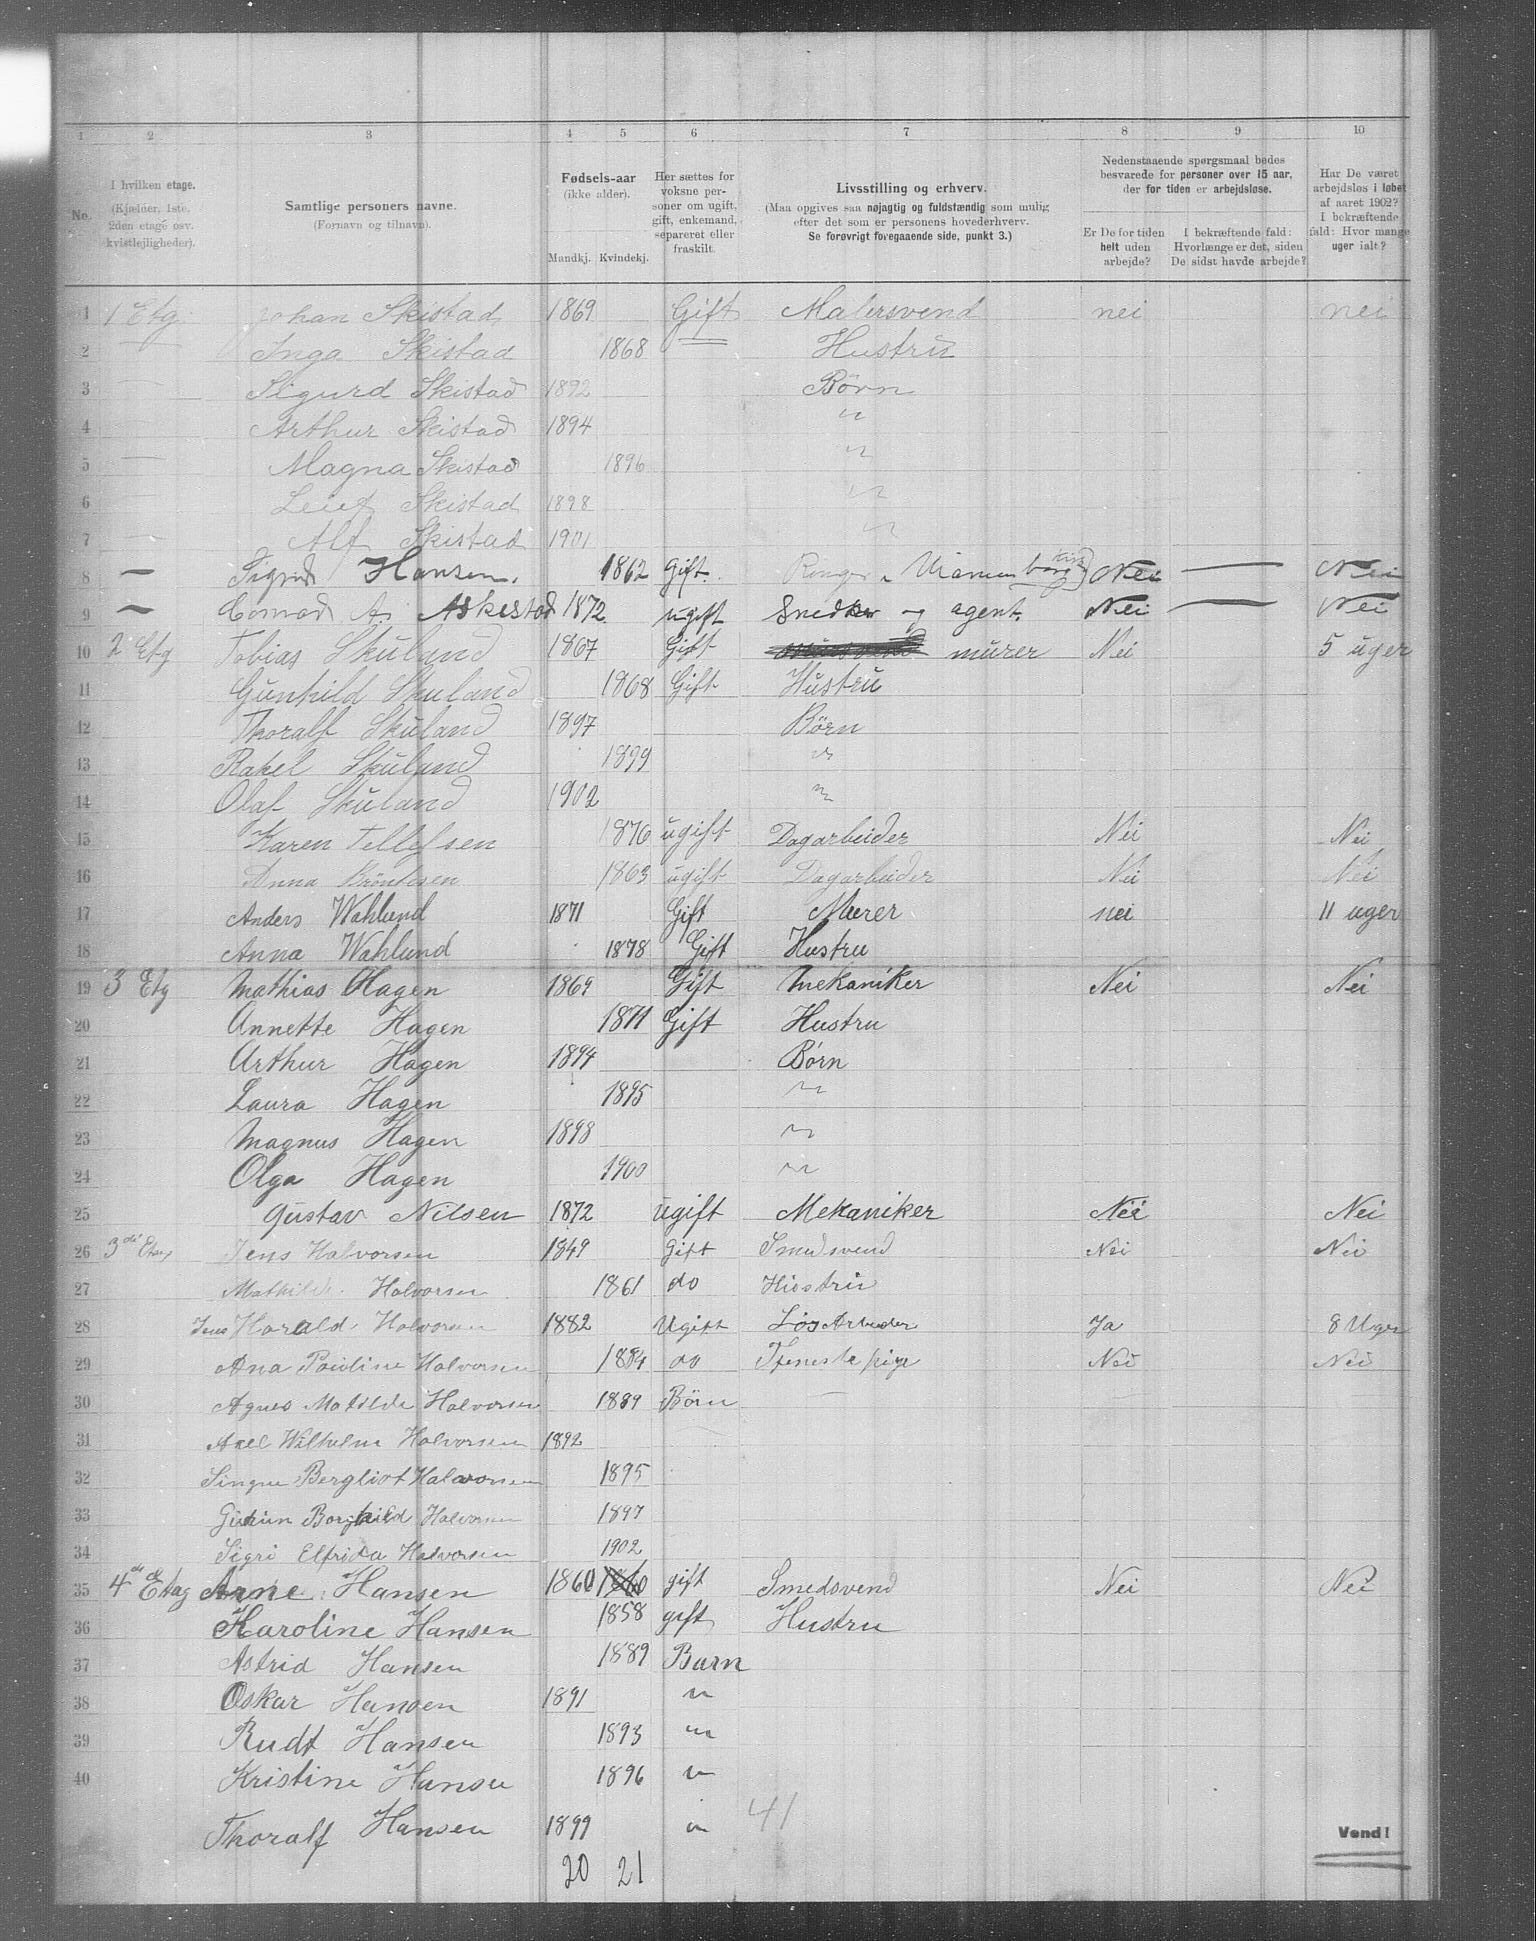 1 2 3 4 5 6 7 8 9 10
No.
I hvilken etage. (Kjælder, 1ste, 2den etage osv. kvistlejligheder).
Samtlige personers navne. (Fornavn og tilnavn).
Fødsels-aar (ikke alder). Mandkj. Kvindekj.
Her sættes for voksne personer om ugift, gift, enkemand, separeret eller fraskilt.
Livsstilling og erhverv. (Maa opgives saa nøjagtig og fuldstændig som mulig efter det som er personens hovederhverv. Se forøvrigt foregaaende side, punkt 3.)
Nedenstaaende spørgsmaal bedes besvarede for personer over 15 aar, der for tiden er arbejdsløse.
Er De for tiden helt uden arbejde?
I bekræftende fald: Hvorlænge er det, siden De sidst havde arbejde?
Har De været arbejdsløs i løbet af aaret 1902? I bekræftende fald: Hvor mange uger ialt?
1 1 Etg. Johan Skistad 1869 Gift Malersvend nei nei
2 — Inga Skistad 1868 = Hustru
3 — Sigurd Skistad 1892 Børn
4 — Arthur Skistad 1894 "
5 — Magna Skistad 1896 "
6 — Leif Skistad 1898 "
7 Alf Skistad 1901 "
8 — Sigrid Hansen. 1862 Gift. Nei — Nei
9 — Conrad A. Askestad 1872 ugift Snedker og agent. Nei — Nei
10 2 Etg Tobias Skuland 1867 Gift murer Nei 5 uger
11 Gunhild Skuland 1868 Gift Hustru
12 Thoralf Skuland 1897 Børn
13 Rakel Skuland 1899 "
14 Olaf Skuland 1902 "
15 Karen Tellefsen 1876 ugift Dagarbeider Nei Nei
16 Anna 1863 ugift Dagarbeider Nei Nei
17 Anders Wahlund 1871 Gift Murer nei 11 uger
18 Anna Wahlund 1878 Gift Hustru
19 3 Etg Mathias Hagen 1869 Gift Mekaniker Nei Nei
20 Annette Hagen 1871 Gift Hustru
21 Arthur Hagen 1894 Børn
22 Laura Hagen 1895 "
23 Magnus Hagen 1898 "
24 Olga Hagen 1900 "
25 Gustav Nilsen 1872 ugift Mekaniker Nei Nei
26 3die Etag Jens Halvorsen 1849 Gift Smedsvend Nei Nei
27 Mathilde Halvorsen 1861 do Hustru
28 Jens Harald Halvorsen 1882 Ugift Løs Arbeider Ja 8 Uger
29 Ana Pauline Halvorsen 1884 do Tjeneste pige Nei Nei
30 Agnes Matilde Halvorsen 1889 Børn —
31 Axel Wilhelm Halvorsen 1892
32 Singne Bergliot Halvorsen 1895
33 Gudrun Borghild Halvorsen 1897
34 Sigri Elfrida Halvorsen 1902
35 4de Etag Arne Hansen 1860 1860 gift Smedsvend Nei Nei
36 Karoline Hansen 1858 gift Hustru
37 Astrid Hansen 1889 Barn
38 Oskar Hansen 1891 "
39 Rudt Hansen 1893 "
40 Kristine Hansen 1896 "
Thoralf Hansen 1899 " 41
20 21
Vend!